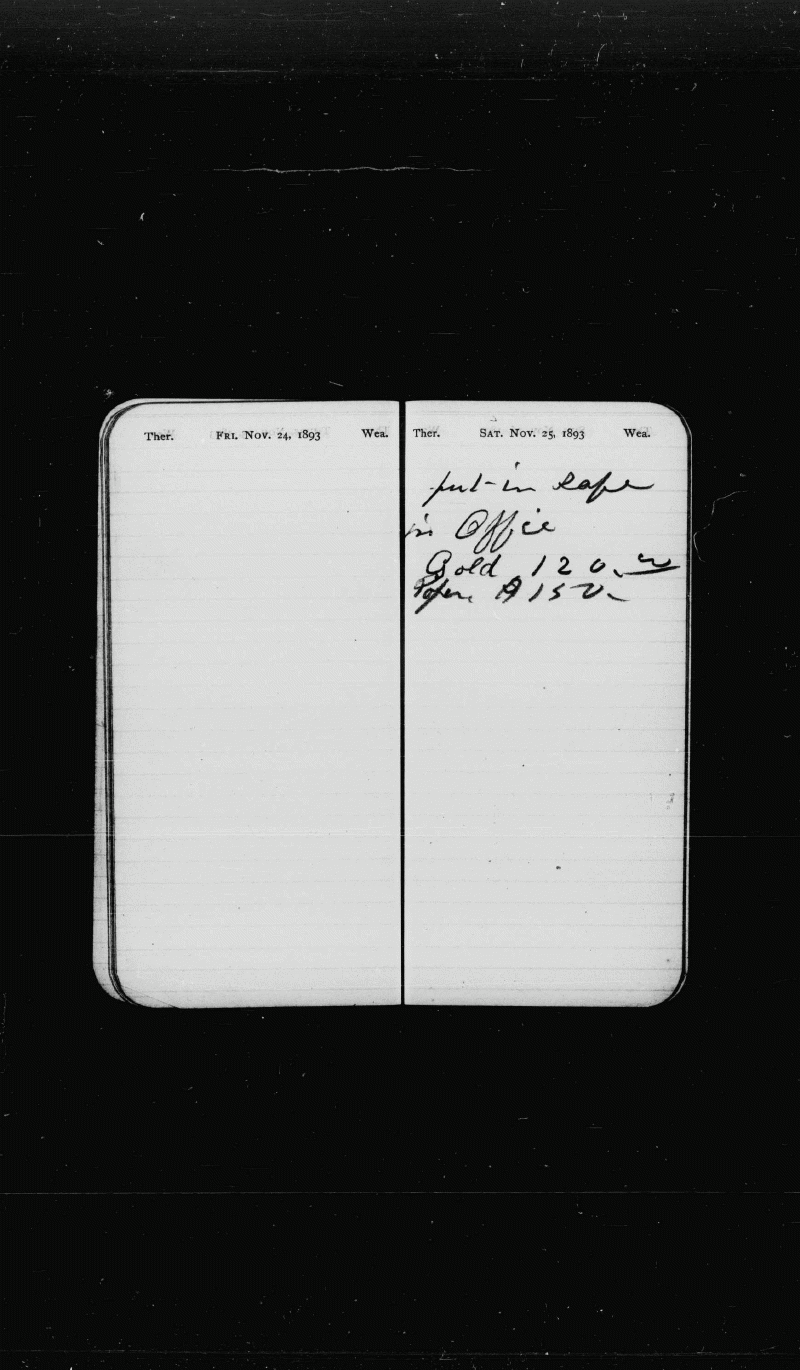 Ther. FRI. NOV. 24, 1893 Wea.
Ther. SAT. NOV. 25, 1893 Wea.
put in safe
in Office
Gold 120.00
150